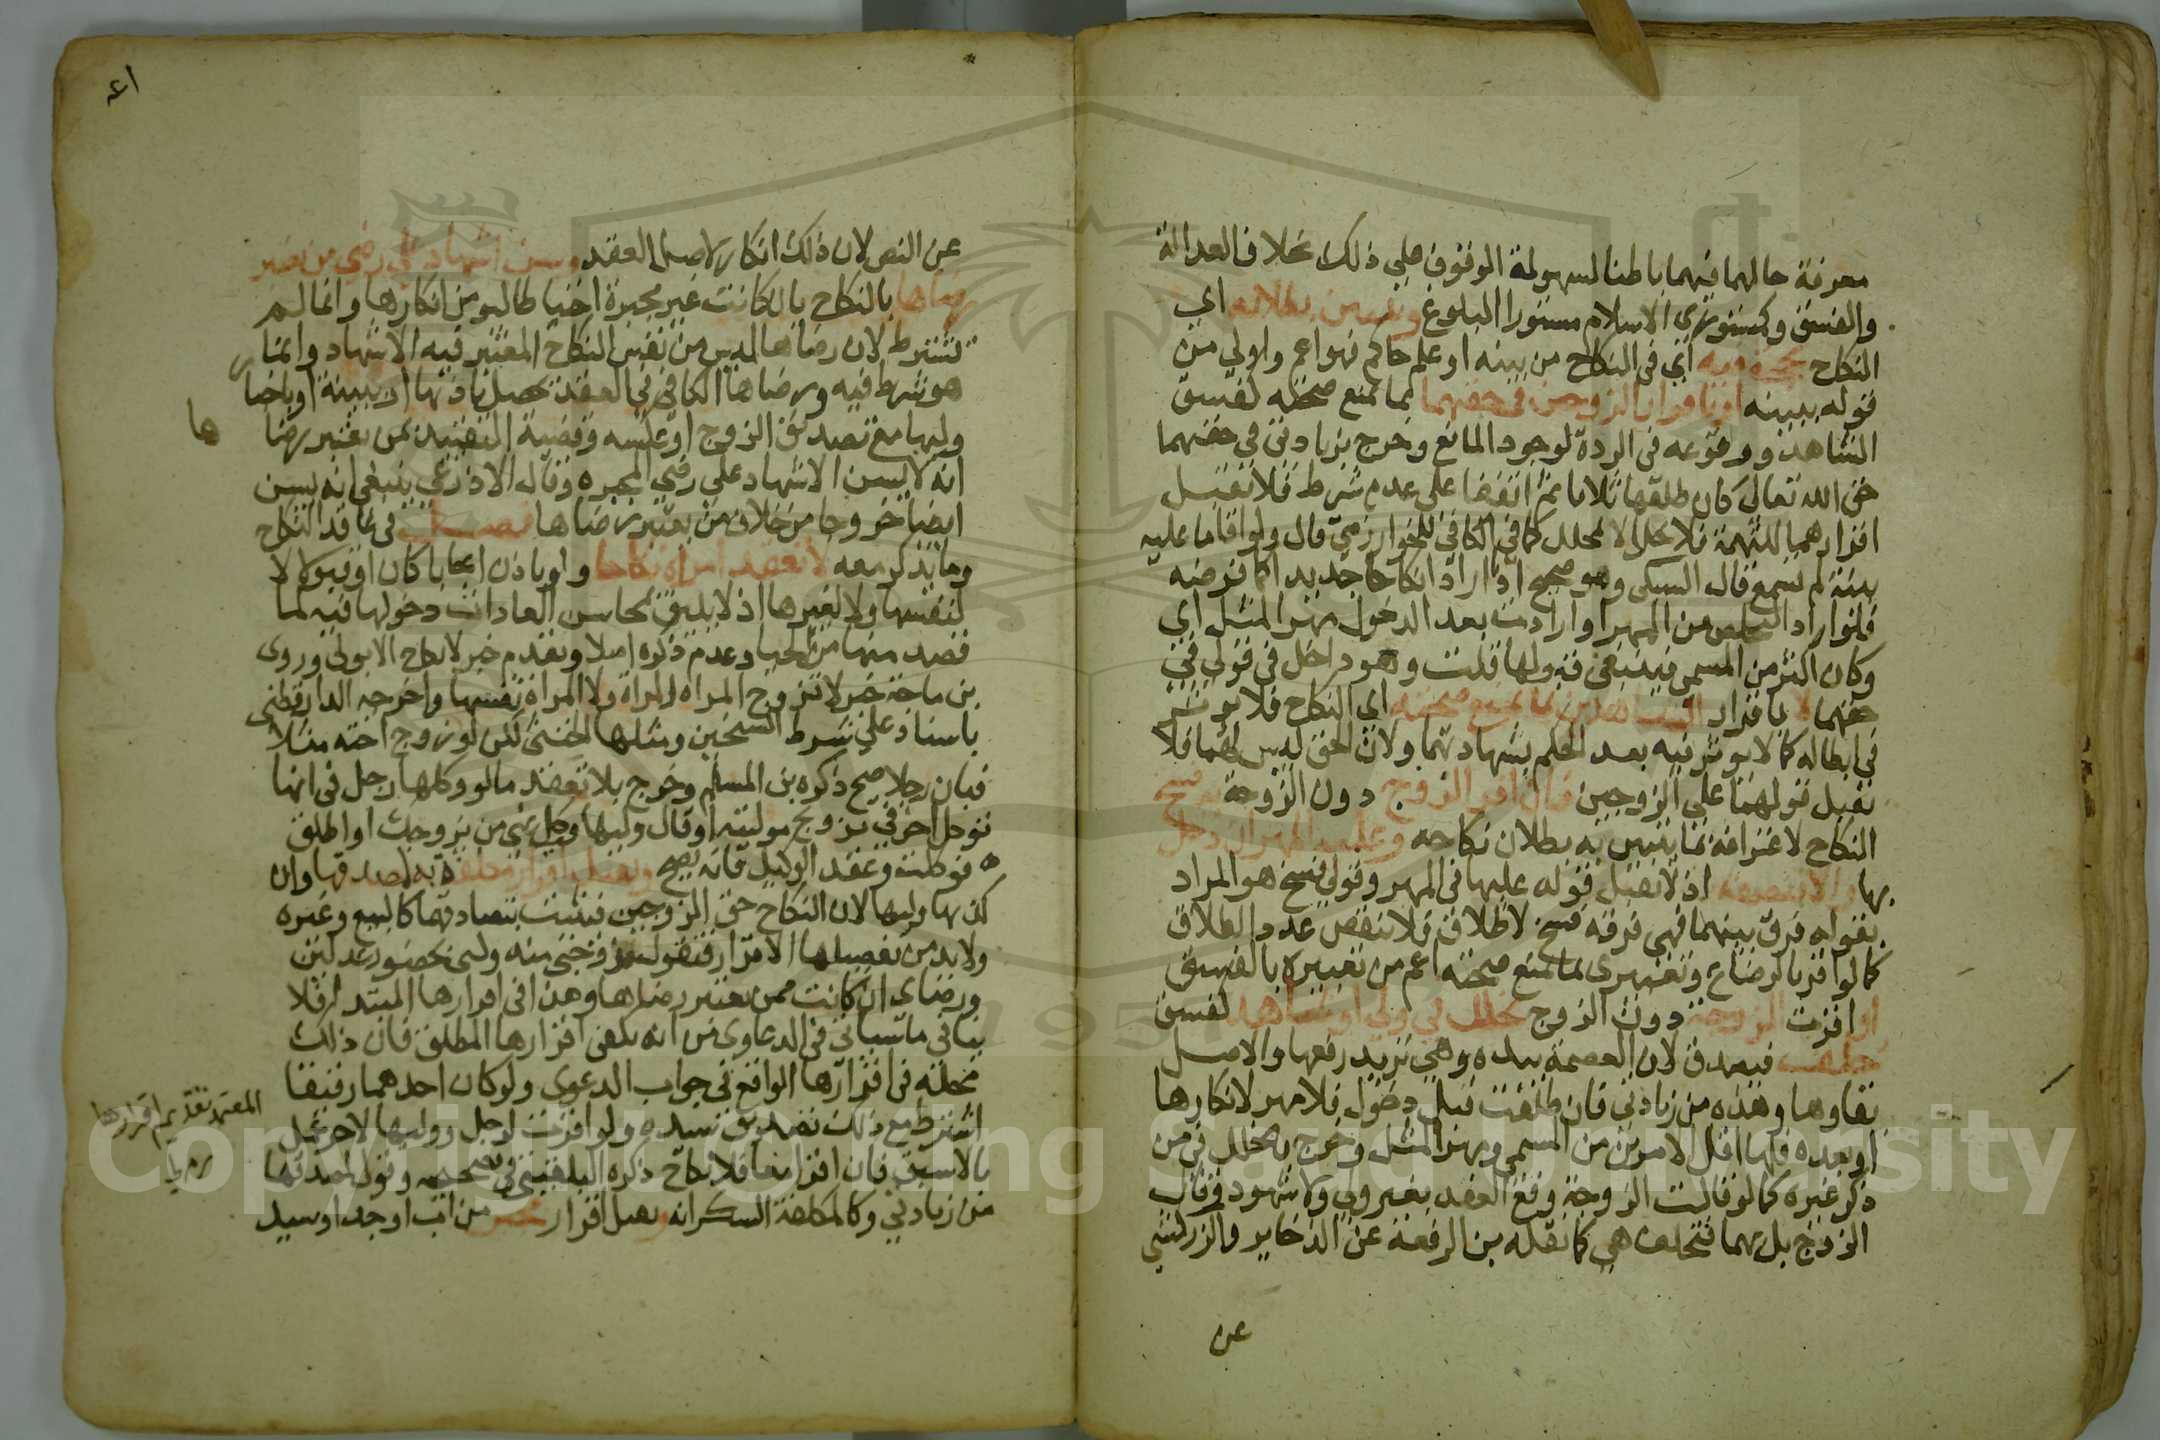 معرفة حالهما فيهما باطنا لسهولة الوقوف علي ذلك بخلاف العدالة
والفسق وكمستوري الاسلام مستورا البلوغ وتبين بطلانه اي
النكاح بحجة فيه اي في النكاح من بينه او علم حاكم فهو اعم واولي من
قوله ببينه او باقرار الزوجين في حقهما بما يمنع صحته كفسق
الشاهد ووقوعه في الردة لوجود المانع وخرج بزيادتي في حقهما
حق الله تعالي كان طلقها ثلاثا ثم اتفقا علي عدم شرط فلا يقبل
اقرارهما للتهمة فلا تحل الا بمحلل كما في الكافي للخوارزمي قال ولو اقاما عليه
بينة لم تسمع قال السبكي وهو صحيح اذا اراد انكاحا جديدا كما فرضه
فلو اراد التخلص من المهر او ارادت بعد الدخول مهر المثل اي
وكان اكثر من المسمي فينبغي قبولها قلت وهو داخل في قولي في
حقهما لا باقرار الشاهدين بما يمنع صحته اي النكاح فلا يوثر
في ابطاله كما لا يوثر فيه بعد الحكم بشهادتهما ولان الحق ليس لهما فلا
يقبل قولهما علي الزوجين فان اقر الزوج دون الزوجة به فسخ
النكاح لاعترافه بما يتبين به بطلان نكاحه وعليه المهر ان دخل
بها والا فنصفه اذ لا يقبل قوله عليها في المهر وقولي فسخ هو المراد
بقوله فرق بينهما فهي فرقه فسخ لا طلاق فلا تنقص عدد الطلاق
كما لو اقر بالرضاع وتعبيري بما يمنع صحته اعم من تعبيره بالفسق
او اقرت الزوجة دون الزوج بخلل في ولي او شاهد كفسق
حلف فيصدق لان العصمة بيده وهي تريد رفعها والاصل
بقاوها وهذه من زيادتي فان طلقت قبل دخول فلا مهر لانكارها
او بعده فلها اقل الامرين من المسمي ومهر المثل وخرج بخلل في من
ذكر غيره كما لو قالت الزوجة وقع العقد بغير ولي ولا شهود وقال
الزوج بل بهما فتحلف هي كما نقله بن الرفعة عن الذخاير والزركشي
عن
٤١
عن النص لان ذلك انكار لاصل العقد وسن اشهاد علي رضي من يعتبر
رضاها بالنكاح بان كانت غير مجبرة احتياطا ليومن انكارها وانما لم
تشترط لان رضاها ليس من نفس النكاح المعتبر فيه الاشهاد وانما
هو شرط فيه ورضاها الكافي في العقد يحصل باذنها او ببينة او باخبار
وليها مع تصديق الزوج او عكسه وقضية التقييد بمن يعتبر رضاها
انه لا يسن الاشهاد علي رضي المجبره وقال الاذرعي ينبغي انه يسن
ايضا خروجا من خلاف من يعتبر رضاها فصل في عاقد النكاح
وما يذكر معه لا تعقد امراة نكاحا ولو باذن ايجابا كان او قبولا لا
لنفسها ولا لغيرها اذ لا يليق بمحاسن العادات دخولها فيه لما
قصد منها من الحيا وعدم ذكره اصلا وتقدم خبر لا نكاح الا بولي وروي
بن ماجة خبر لا تزوج المراه المراة ولا المراة نفسها واخرجه الدارقطني
باسناد علي شرط الشيخين ومثلها الخنثي لكن لو زوج اخته مثلا
فبان رجلا صح ذكره بن المسلم وخرج بلا تعقد ما لو وكلها رجل في انها
توكل اخر في تزويج موليته او قال وليها وكلي عني من يزوجك او اطلق
فوكلت وعقد الوكيل فانه يصح ويقبل اقرار مكلفة به لمصدقها وان
كذبها وليها لان النكاح حق الزوجين فيثبت بتصادقهما كالبيع وغيره
ولا بد من تفصيلها الاقرار فتقول زوجني منه ولي بحضور عدلين
ورضاي ان كانت ممن يعتبر رضاها وهذا في اقرارها المبتدا فلا
ينافي ما سياتي في الدعاوي من انه يكفي اقرارها المطلق فان ذلك
محله في اقرارها الواقع في جواب الدعوي ولو كان احدهما رقيقا
اشترط مع ذلك تصديق سيده ولو اقرت لرجل ووليها لاخر عمل
بالاسبق فان اقرا معا فلا نكاح ذكره البلقيني في تصحيحه وقولي لمصدقها
من زيادتي وكالمكلفة السكرانه ويقبل اقرار مجبر من اب او جد او سيد
المعتمد تقديم اقرارها
م ر
Copyright © King Saud University
1957